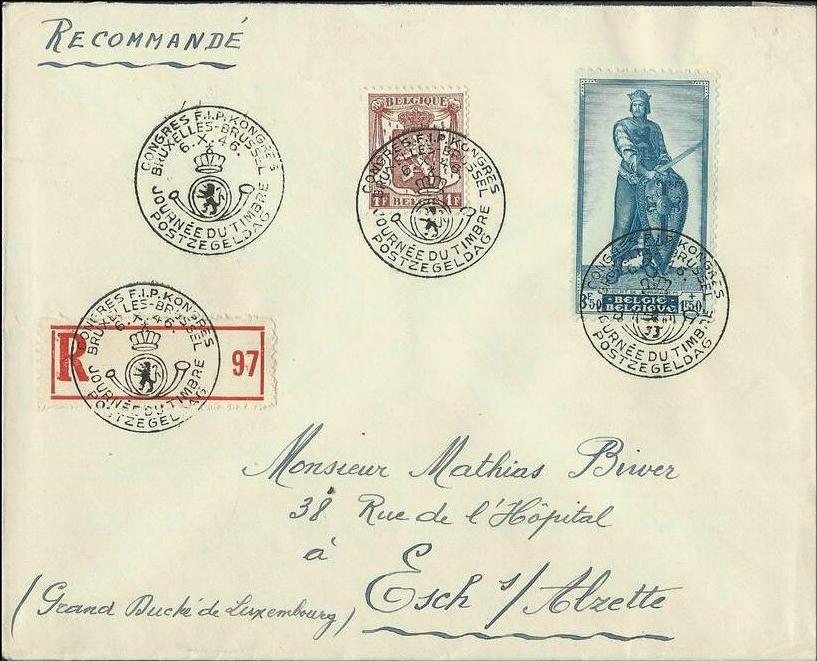 RECOMMANDÉ
CONGRES F.I.P. KONGRES
BRUXELLES-BRUSSEL
6.X.46.
JOURNÉE DU TIMBRE
POSTZEGELDAG
BELGIQUE
1F BELGIE 1F
CONGRES F.I.P. KONGRES
BRUXELLES-BRUSSEL
6.X.46
JOURNÉE DU TIMBRE
POSTZEGELDAG
3F50 BELGIE BELGIQUE + 1F50
CONGRES F.I.P. KONGRES
BRUSSEL
JOURNÉE DU TIMBRE
POSTZEGELDAG
R 97
CONGRES F.I.P. KONGRES
BRUXELLES-BRUSSEL
6.X.46.
JOURNÉE DU TIMBRE
POSTZEGELDAG
Monsieur Mathias Biwer
38 Rue de l'Hôpital
à
Esch s/Alzette
(Grand Duché de Luxembourg)